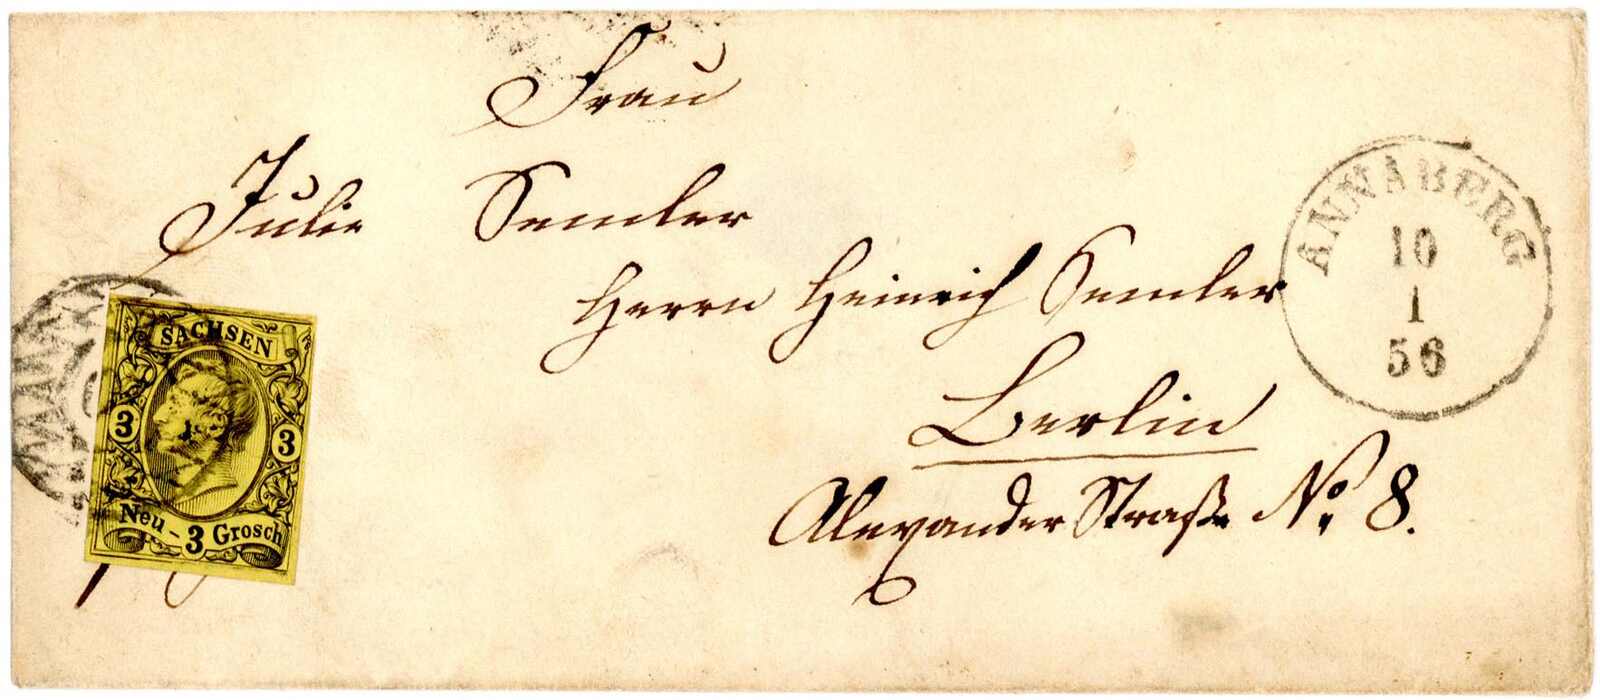 Frau
Julie Semler
Herrn Heinrich Semler
Berlin
Alexander Straße No. 8.
ANNABERG
10
1
56
SACHSEN
3 3
Neu-3 Grosch